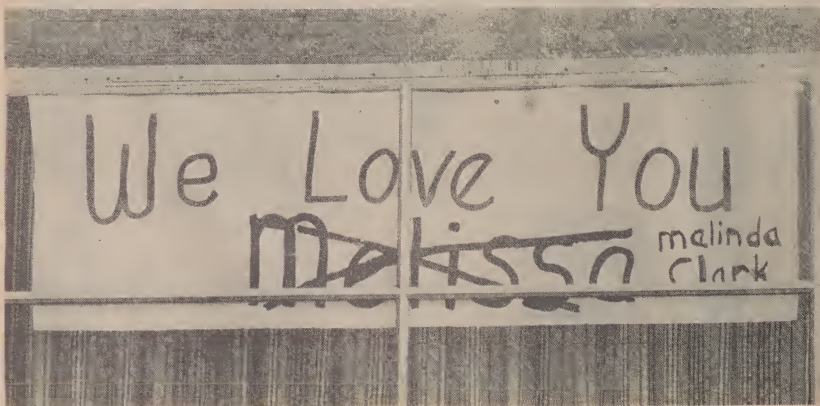 We Love You
Melissa
malinda
Clark